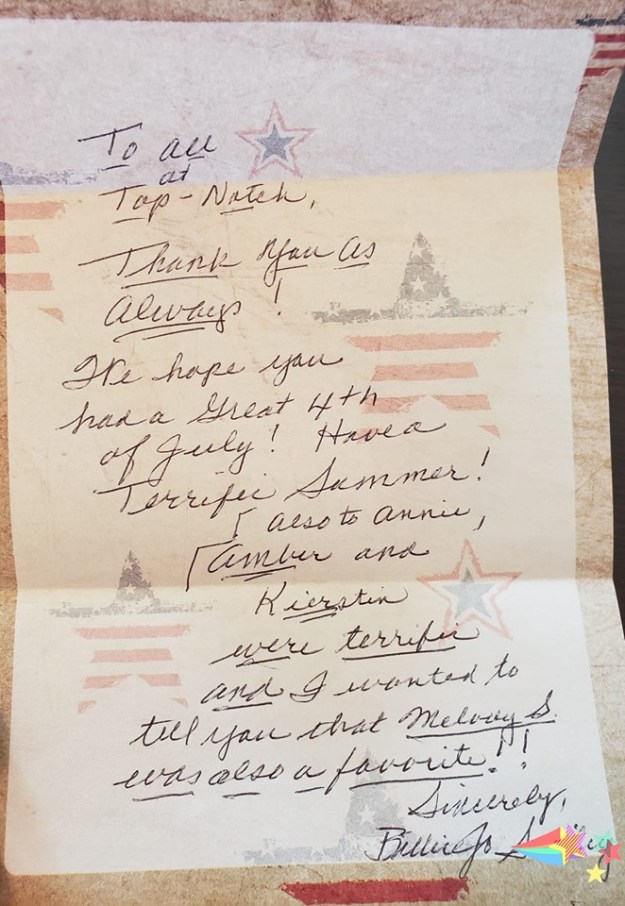 To all
at
Top-Notch,
Thank You As
Always!
We hope you
had a Great 4th
of July! Have a
Terrific Summer!
[also to Annie,
[Amber and
Kierstin
were terrific
and I wanted to
tell you that Melody S.
was also a favorite!!
Sincerely,
Billie Jo